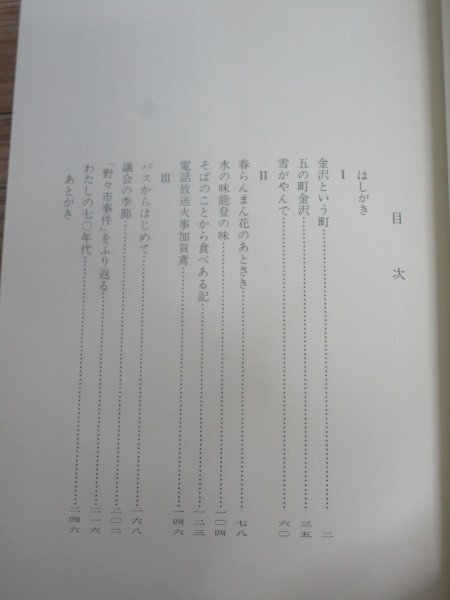 目次
はしがき
Ⅰ
金沢という町 二
五の町金沢 三五
雪がやんで 六〇
Ⅱ
春らんまん花のあとさき 七八
水の味能登の味 一〇四
そばのことから食べある記 一二三
電話放送火事加賀鳶 一四六
Ⅲ
バスからはじめて 一六八
議会の季節 二〇二
「野々市事件」をふり返る 二一六
わたしの七〇年代 二四六
あとがき